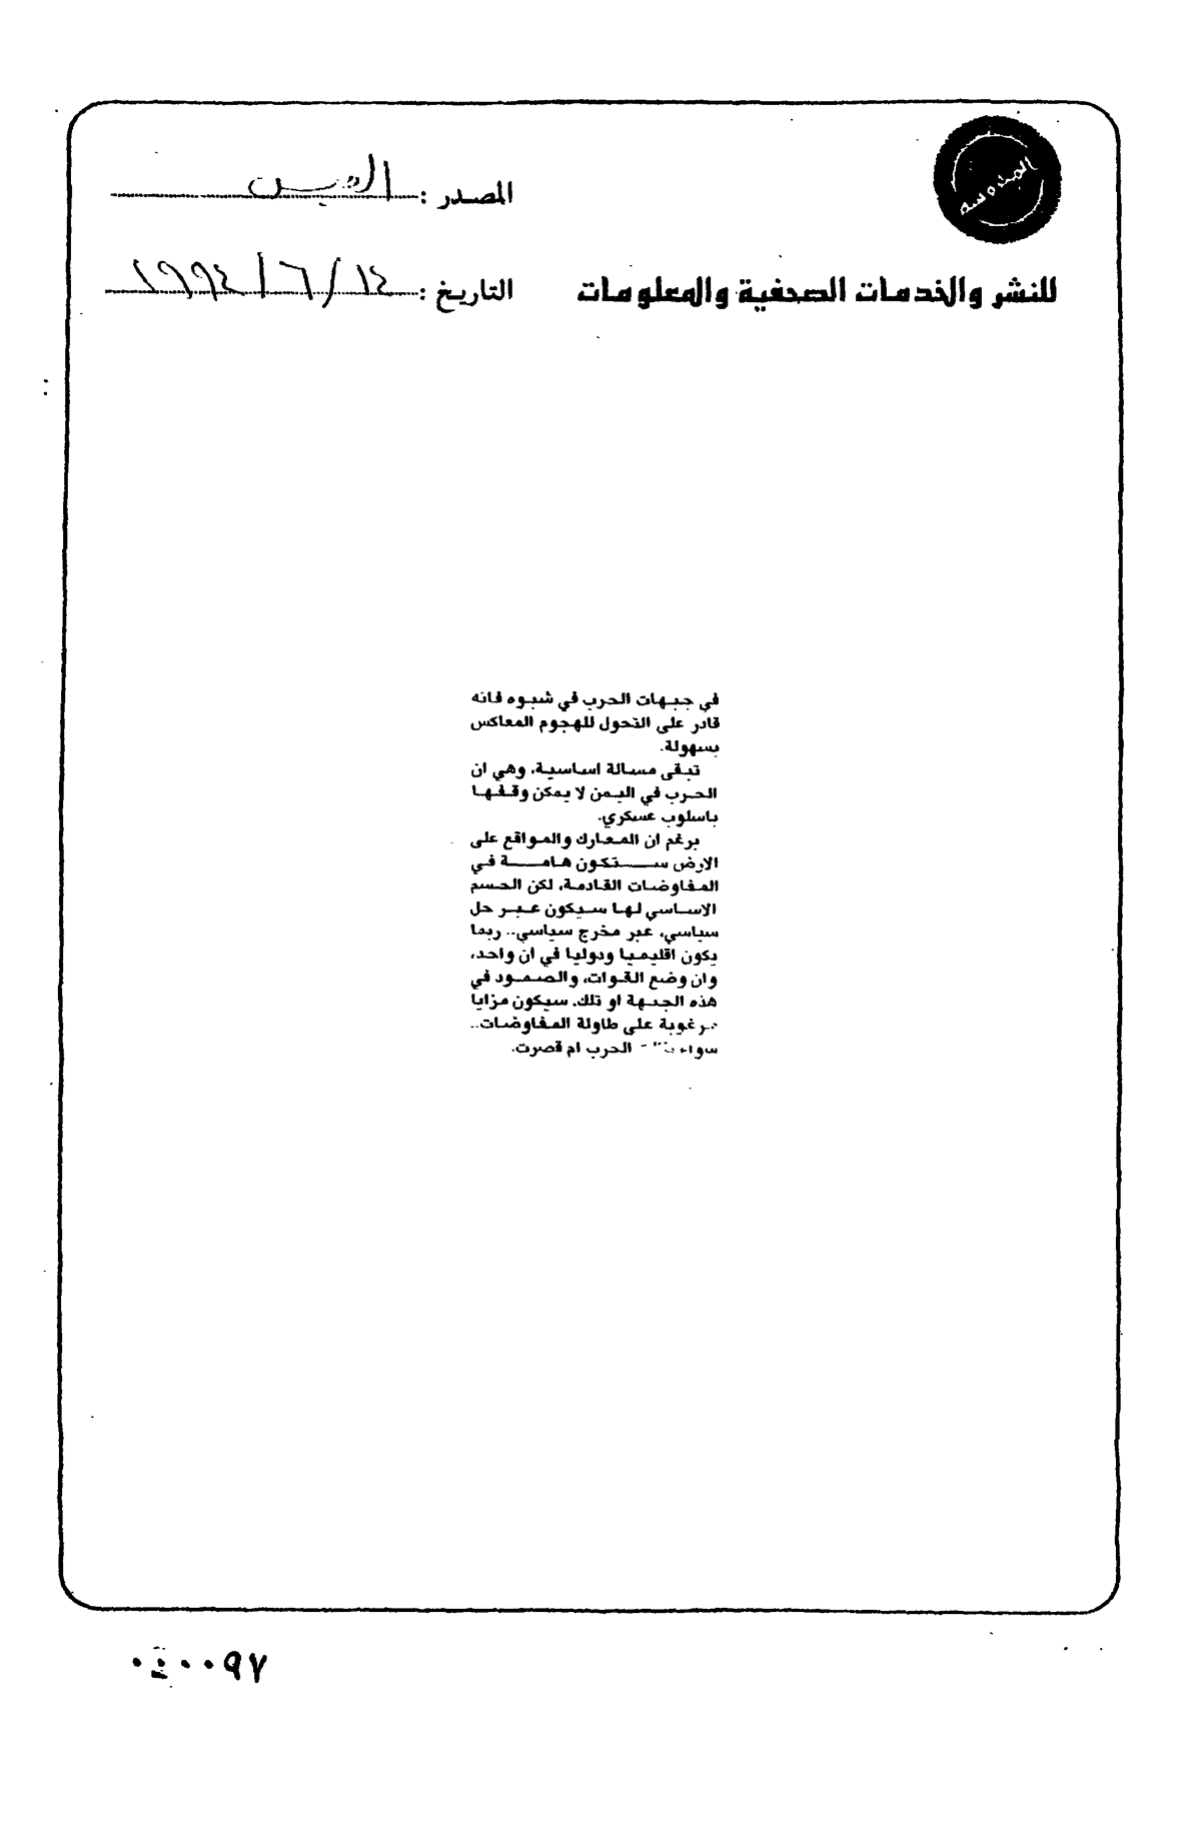 المصدر : القبس
للنشر والخدمات الصحفية والمعلومات
التاريخ : ١٤ / ٦ / ١٩٩٤
في جبهات الحرب في شبوه فانه
قادر على التحول للهجوم المعاكس
بسهولة.
تبقى مسالة اساسية، وهي ان
الحرب في اليمن لا يمكن وقفها
باسلوب عسكري.
برغم ان المعارك والمواقع على
الارض ستكون هامة في
المفاوضات القادمة، لكن الحسم
الاساسي لها سيكون عبر حل
سياسي، عبر مخرج سياسي.. ربما
يكون اقليميا ودوليا في ان واحد،
وان وضع القوات، والصمود في
هذه الجبهة او تلك، سيكون مزايا
مرغوبة على طاولة المفاوضات..
سواء الحرب ام قصرت.